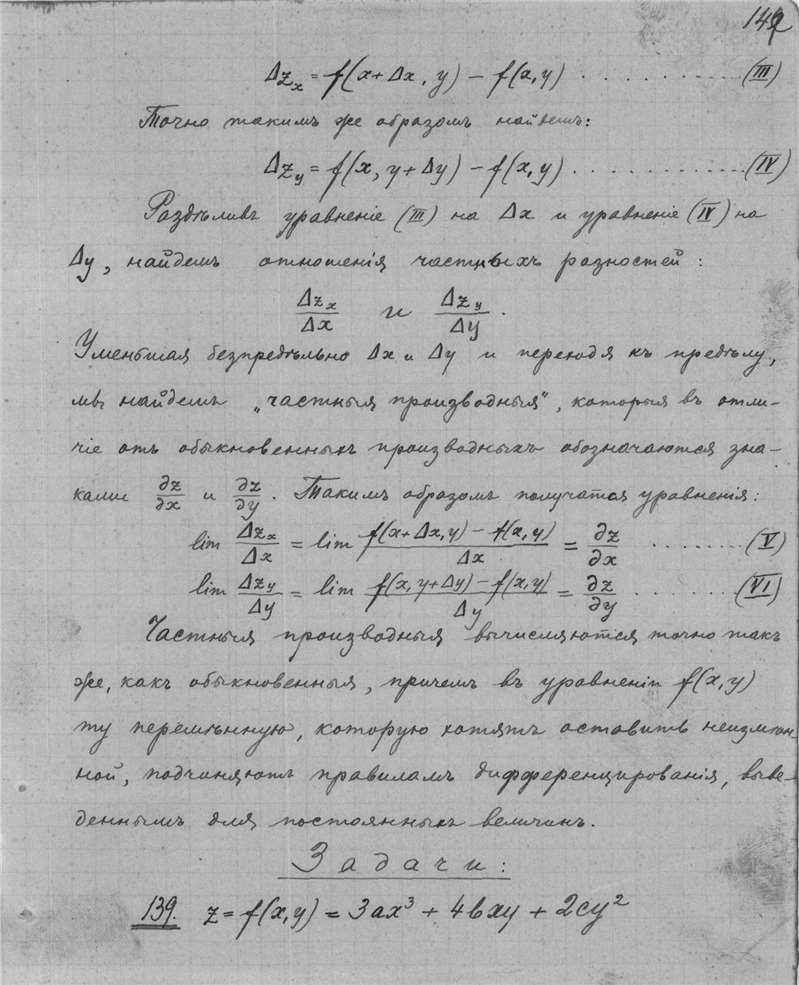 142
Δz_x = f(x+Δx, y) − f(x, y) . . . . . . . . . . (III)
Точно такимъ же образомъ найдемъ:
Δz_y = f(x, y+Δy) − f(x, y) . . . . . . . . . . . . (IV)
Раздѣливъ уравненіе (III) на Δx и уравненіе (IV) на
Δy, найдемъ отношенія частныхъ разностей:
Δz_x/Δx и Δz_y/Δy.
Уменьшая безпредѣльно Δx и Δy и переходя къ предѣлу,
мы найдемъ „частныя производныя“, которыя въ отли-
чіе отъ обыкновенныхъ производныхъ обозначаются зна-
ками ∂z/∂x и ∂z/∂y. Такимъ образомъ получатся уравненія:
lim Δz_x/Δx = lim (f(x+Δx, y) − f(x, y))/Δx = ∂z/∂x . . . . . . . (V)
lim Δz_y/Δy = lim (f(x, y+Δy) − f(x, y))/Δy = ∂z/∂y . . . . . . . (VI)
Частныя производныя вычисляются точно такъ
же, какъ обыкновенныя, причемъ въ уравненіи f(x, y)
ту перемѣнную, которую хотятъ оставить неизмѣн-
ной, подчиняютъ правиламъ дифференцированія, выве-
деннымъ для постоянныхъ величинъ.
Задачи:
139. z = f(x, y) = 3ax³ + 4bxy + 2cy²